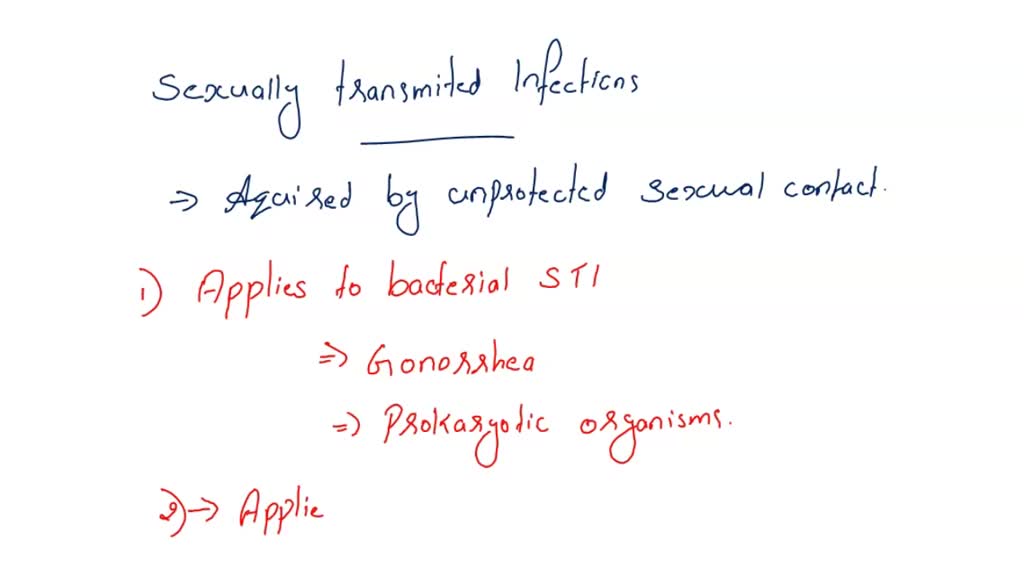 Sexually transmited Infections
⇒ Aquired by unprotected sexual contact.
1) Applies to bacterial STI
⇒ Gonorrhea
⇒ Prokaryotic organisms.
2) → Applie